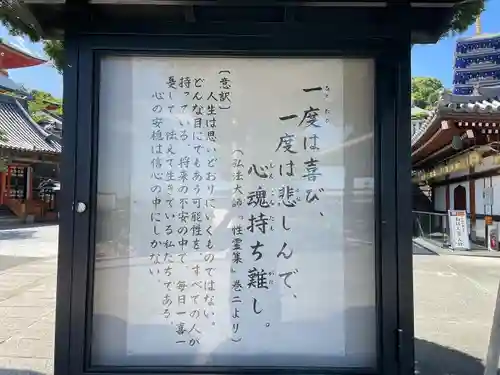 一度は喜び、
一度は悲しんで、
心魂持ち難し。
(弘法大師『性霊集』巻二より)
〔意訳〕
人生は思いどおりにいくものではない。
どんな目にでもあう可能性を、すべての人が
持っている。将来の不安の中で、毎日一喜一
憂して、怯えて生きている私たちである。
心の安穏は信心の中にしかない。